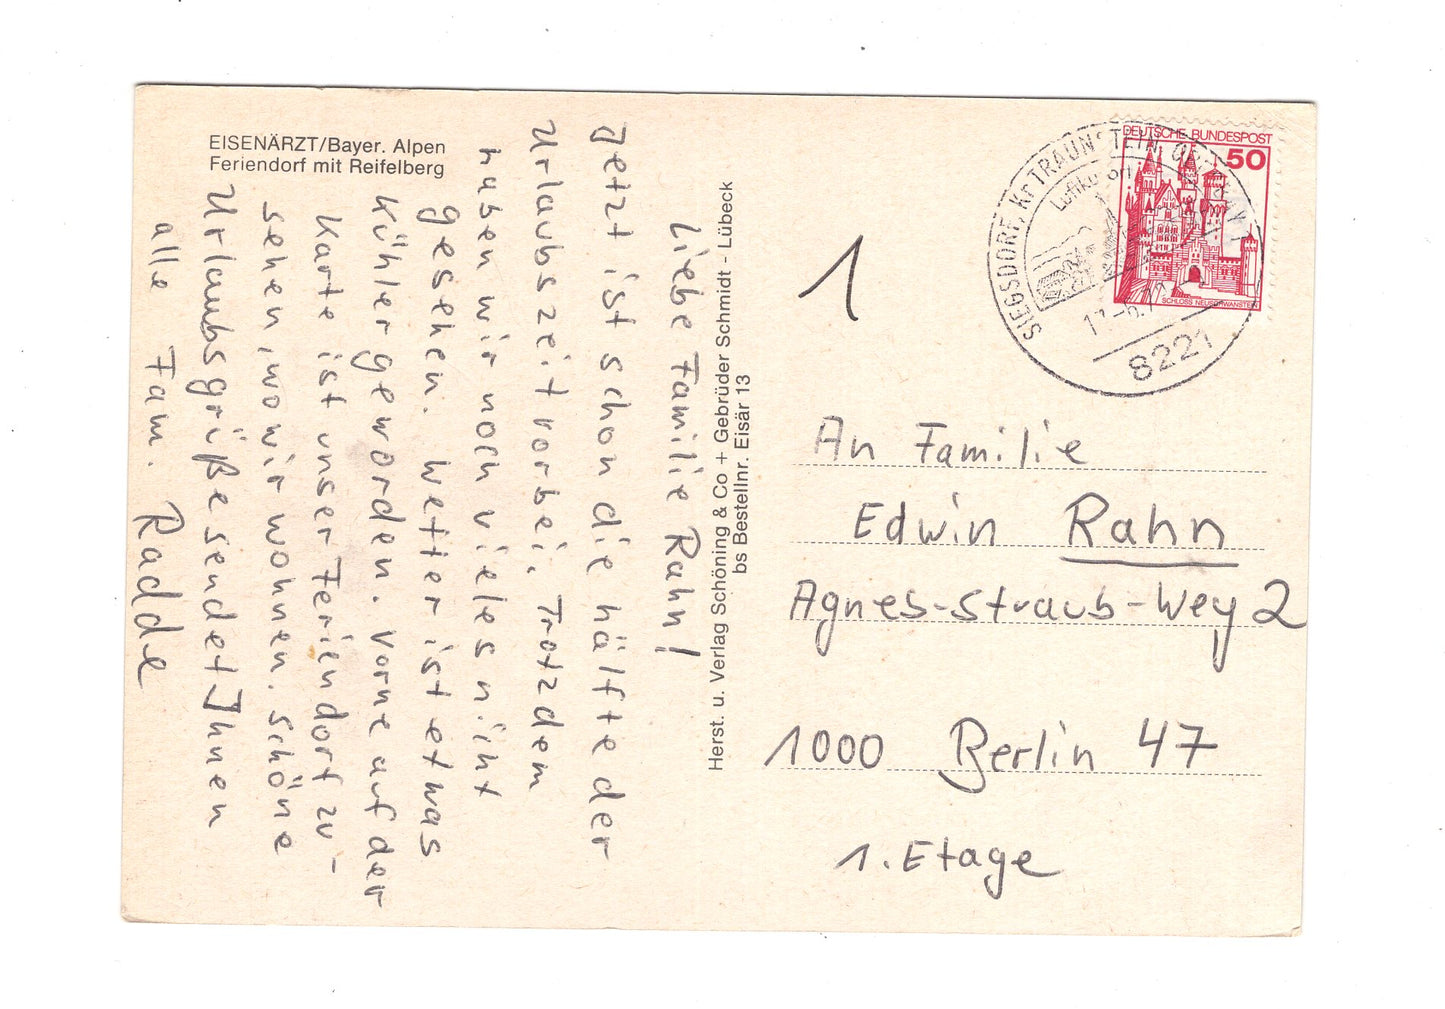 EISENÄRZT/Bayer. Alpen
Feriendorf mit Reifelberg
Liebe Familie Rahn!
Jetzt ist schon die hälfte der
Urlaubszeit vorbei, Trotzdem
haben wir noch vieles nicht
gesehen. Wetter ist etwas
kühler geworden. Vorne auf der
Karte ist unser Feriendorf zu-
sehen, wo wir wohnen. Schöne
Urlaubsgrüße sendet Ihnen
alle Fam. Radde
Herst. u. Verlag Schöning & Co + Gebrüder Schmidt - Lübeck
bs Bestellnr. Eisär 13
1
DEUTSCHE BUNDESPOST
50
SCHLOSS NEUSCHWANSTEIN
SIEGSDORF, Kr TRAUNSTEIN
8221
An Familie
Edwin Rahn
Agnes-Straub-Weg 2
1000 Berlin 47
1. Etage